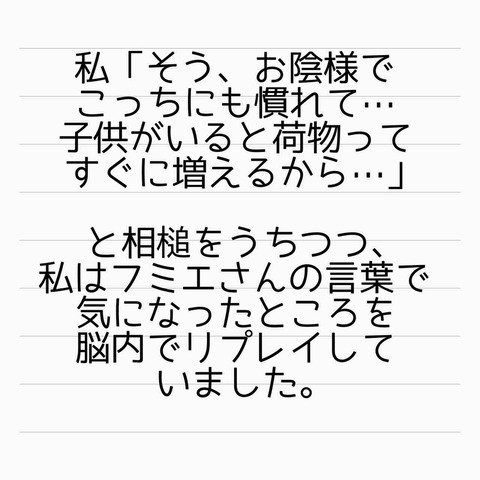 私「そう、お陰様で
こっちにも慣れて…
子供がいると荷物って
すぐに増えるから…」
と相槌をうちつつ、
私はフミエさんの言葉で
気になったところを
脳内でリプレイして
いました。